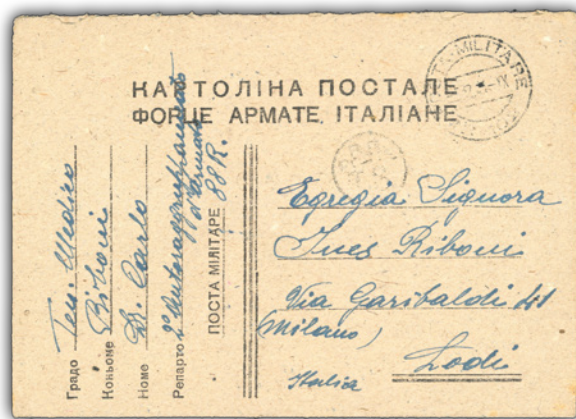 КАРТОЛІНА ПОСТАЛЕ
ФОРЦЕ АРМАТЕ ІТАЛІАНЕ
POSTA MILITARE
Градо Ten. Medico
Коньоме Riboni
Номе Dr. Carlo
Репарто 2° Autoraggruppamento
d'Armata
ПОСТА МІЛІТАРЕ 88 R.
Egregia Signora
Ines Riboni
Via Garibaldi 41
(Milano)
Lodi
Italia